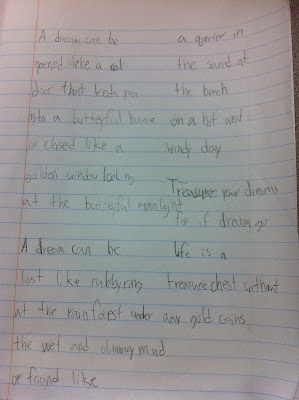 A dream can be
opened like a red
door that leads you
onto a butterful house
or closed like a
golden window looking
at the butterful moonlight
A dream can be
lost like rubby ring
at the rainforest under
the wet and slimmy mud
or found like
a quarter in
the sand at
the beach
on a hot and
windy day
Treasure your dreams
for if dreams go
life is a
treasure chest without
any gold coins